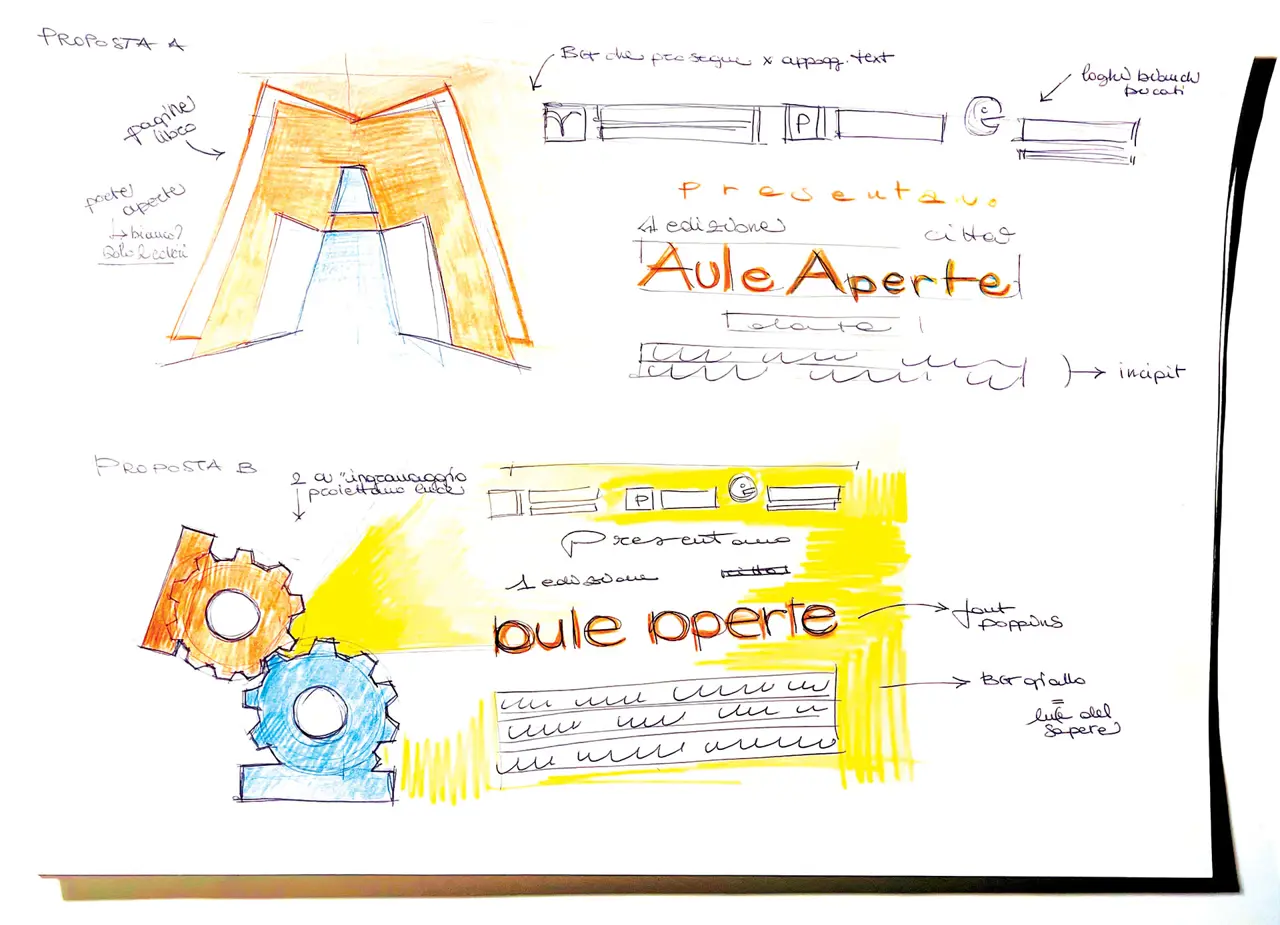 PROPOSTA A
BG che prosegue x appogg. text
loghi bianchi
bucati
pagine
libro
P
porte
aperte
↳ bianco?
Solo 2 colori
presentano
1 edizione
città
Aule Aperte
data
→ incipit
PROPOSTA B
2 a "ingranaggio
proiettano luce
P
Presentano
1 edizione
città
aule aperte
→ font
poppins
→ BG giallo
=
luce del
sapere